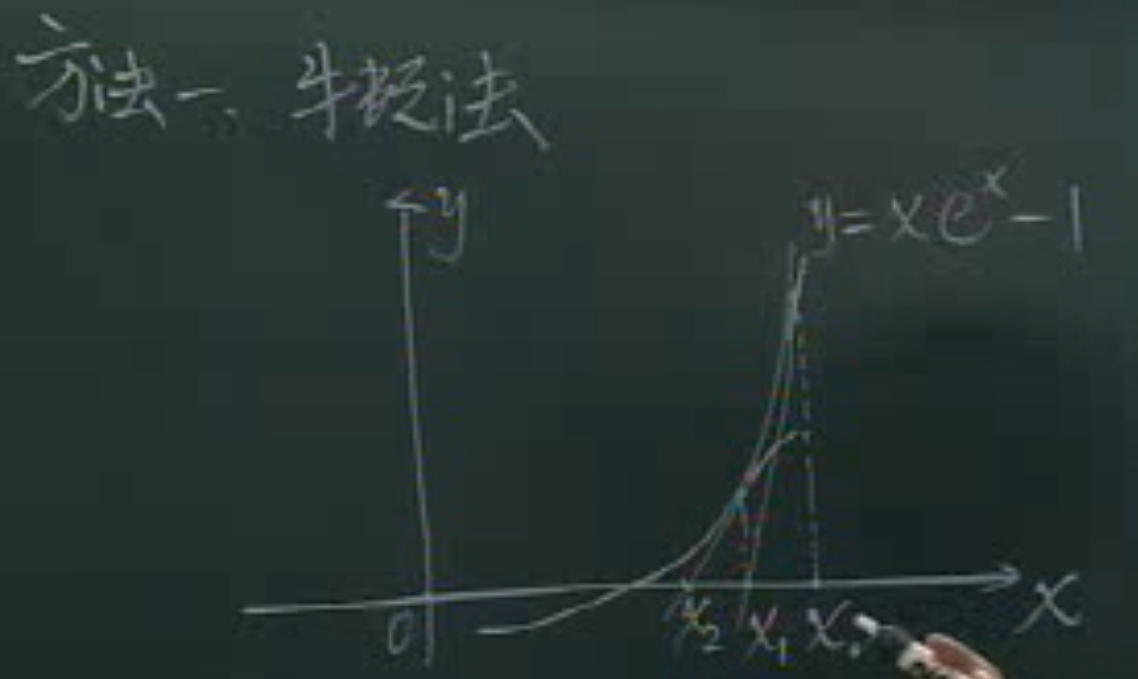 方法一、牛顿法
y
y=xeˣ-1
0
x₂ x₁ x₀
x